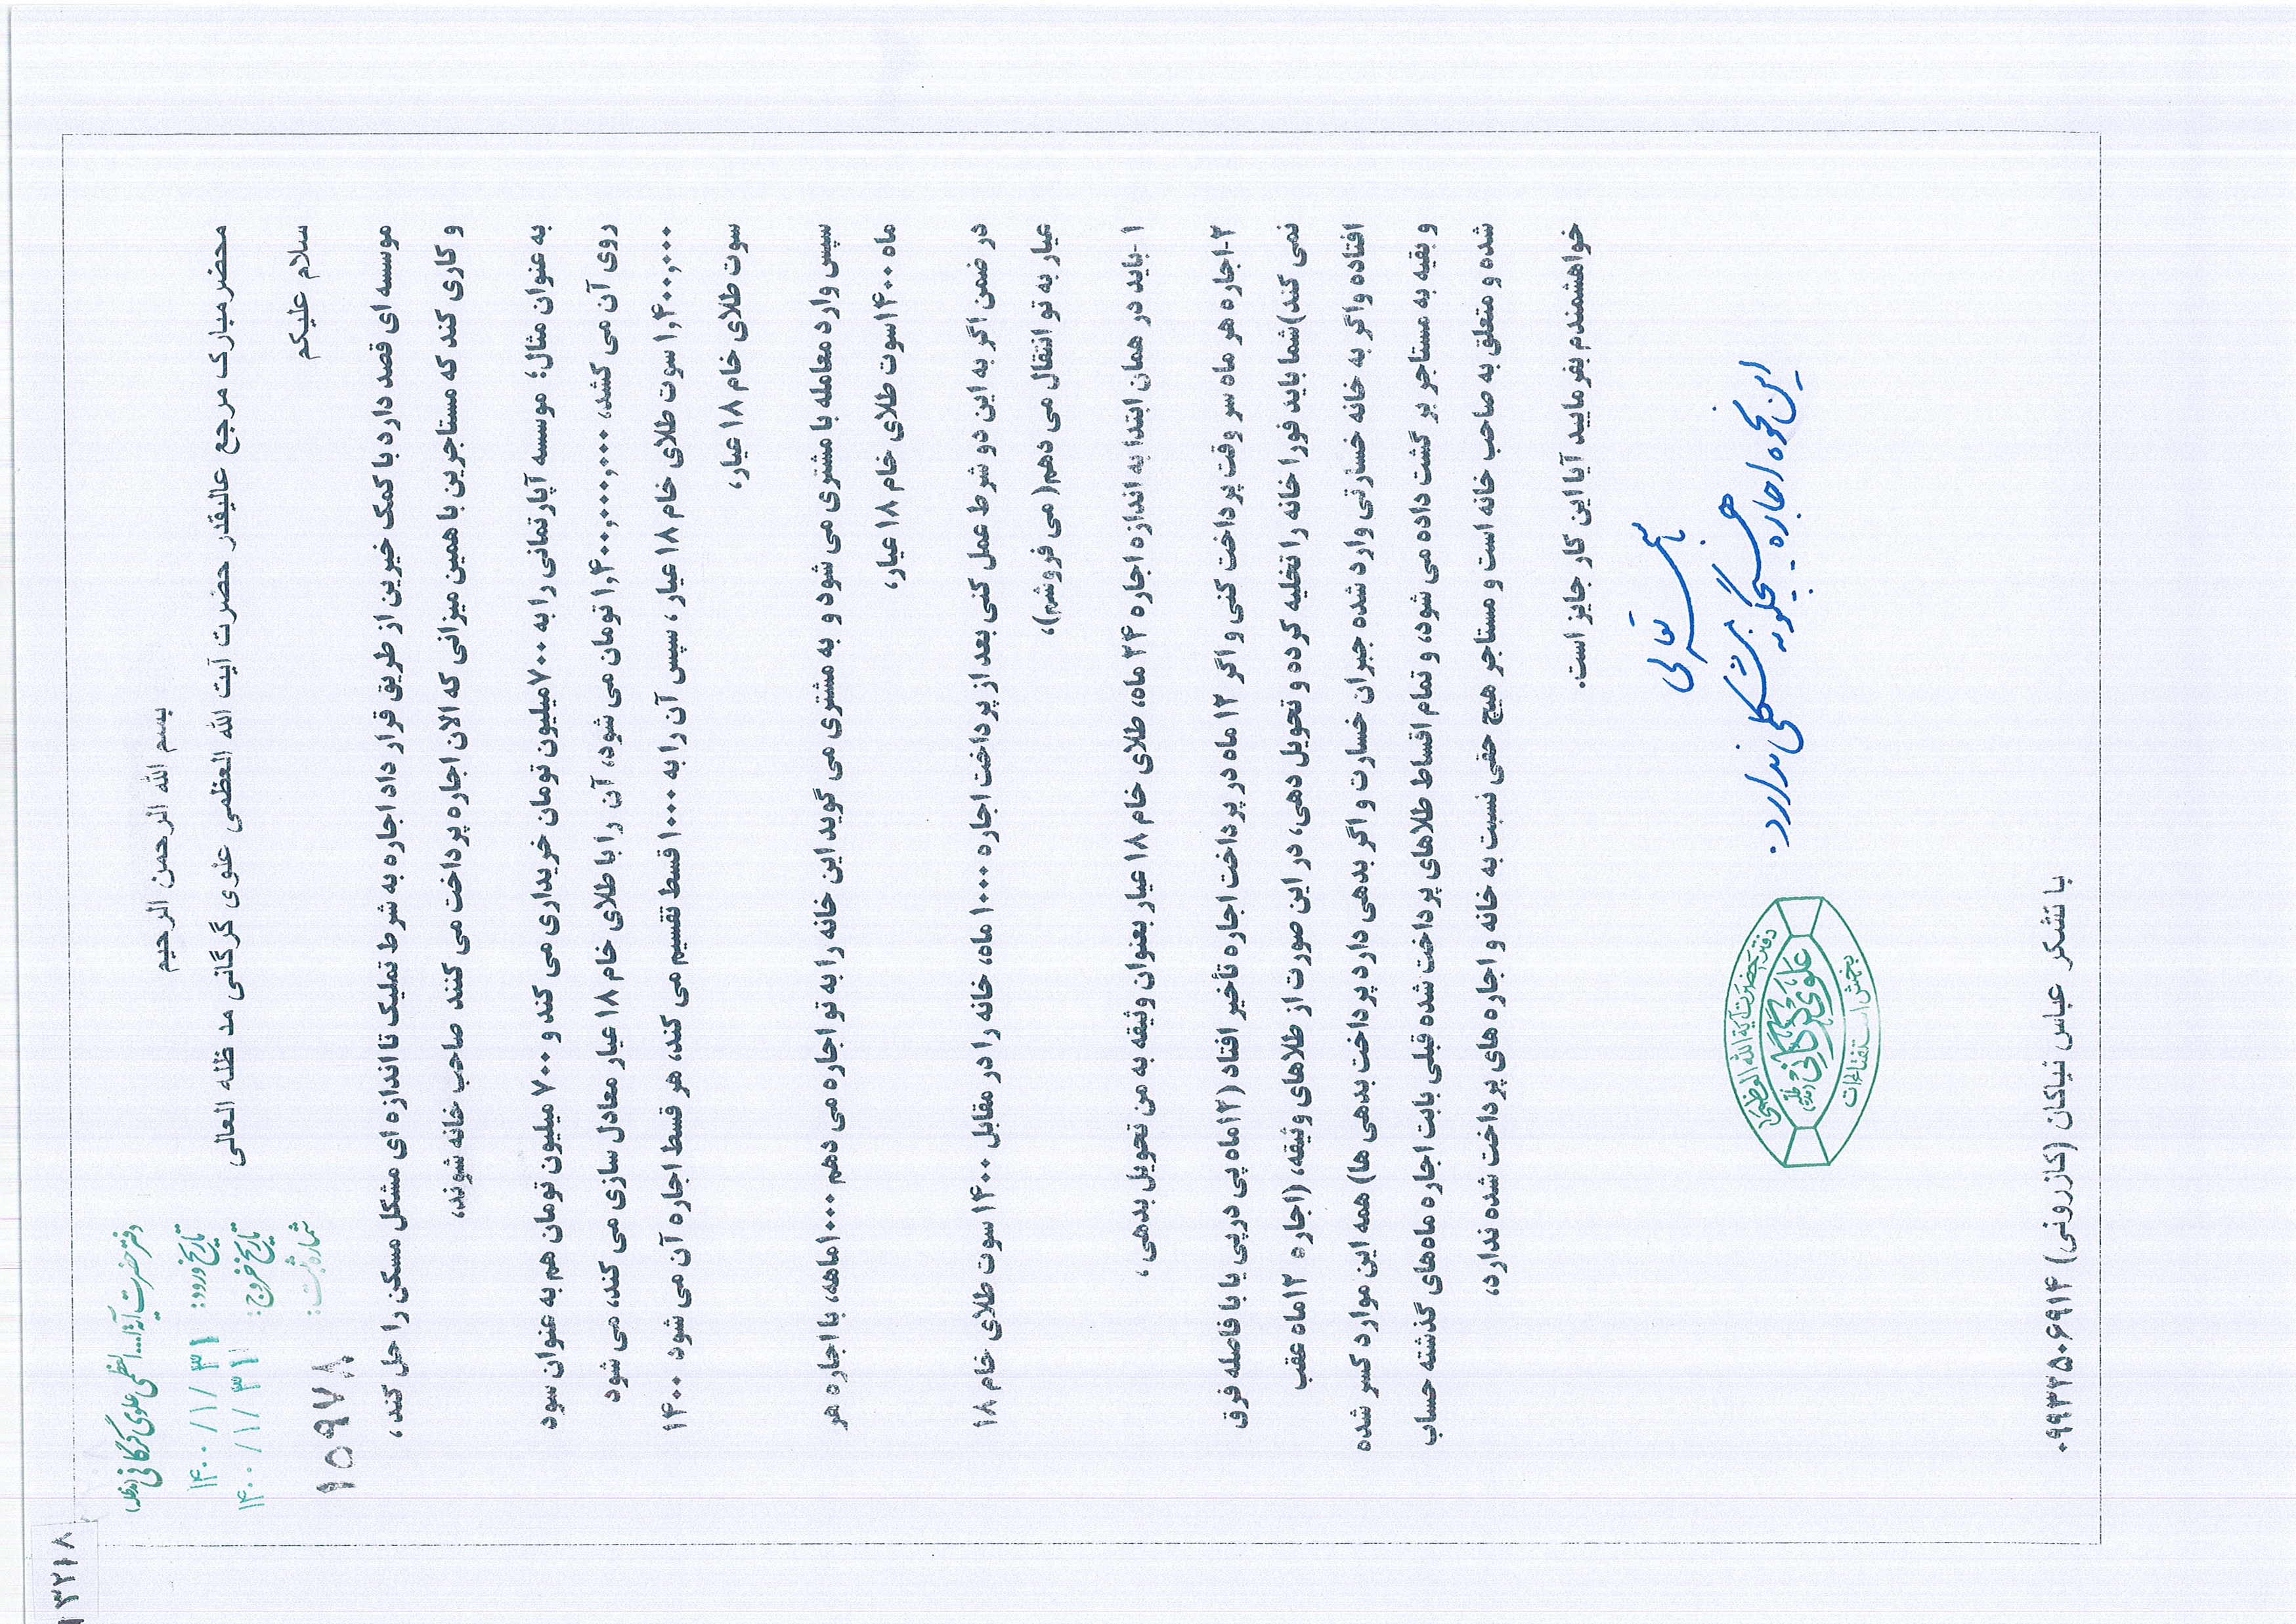 ۳۲۱۸
دفتر حضرت آیة ا... العظمی علوی گرگانی (مدظله)
تاریخ ورود: ۱۴۰۰/۱/۳۱
تاریخ خروج: ۱۴۰۰/۱/۳۱
شماره ثبت:
۱۵۹۷۸
بسم الله الرحمن الرحیم
محضر مبارک مرجع عالیقدر حضرت آیت الله العظمی علوی گرگانی مد ظله العالی
سلام علیکم
موسسه ای قصد دارد با کمک خیرین از طریق قرار داد اجاره به شرط تملیک تا اندازه ای مشکل مسکن را حل کند،
و کاری کند که مستاجرین با همین میزانی که الان اجاره پرداخت می کنند صاحب خانه شوند،
به عنوان مثال؛ موسسه آپارتمانی را به ۷۰۰میلیون تومان خریداری می کند و ۷۰۰ میلیون تومان هم به عنوان سود
روی آن می کشد، ۱,۴۰۰,۰۰۰,۰۰۰ تومان می شود، آن را با طلای خام ۱۸ عیار معادل سازی می کند، می شود
۱,۴۰۰,۰۰۰ سوت طلای خام ۱۸ عیار ، سپس آن را به ۱۰۰۰ قسط تقسیم می کند، هر قسط اجاره آن می شود ۱۴۰۰
سوت طلای خام ۱۸ عیار،
سپس وارد معامله با مشتری می شود و به مشتری می گوید این خانه را به تو اجاره می دهم ۱۰۰۰ماهه، با اجاره هر
ماه ۱۴۰۰سوت طلای خام ۱۸ عیار،
در ضمن اگر به این دو شرط عمل کنی بعد از پرداخت اجاره ۱۰۰۰ ماه، خانه را در مقابل ۱۴۰۰ سوت طلای خام ۱۸
عیار به تو انتقال می دهم( می فروشم)،
۱-باید در همان ابتدا به اندازه اجاره ۲۴ ماه، طلای خام ۱۸ عیار بعنوان وثیقه به من تحویل بدهی،
۲-اجاره هر ماه سر وقت پرداخت کنی و اگر ۱۲ ماه در پرداخت اجاره تأخیر افتاد (۱۲ماه پی درپی یا با فاصله فرق
نمی کند)شما باید فورا خانه را تخلیه کرده و تحویل دهی، در این صورت از طلاهای وثیقه، (اجاره ۱۲ماه عقب
افتاده واگر به خانه خسارتی وارد شده جبران خسارت و اگر بدهی دارد پرداخت بدهی ها) همه این موارد کسر شده
و بقیه به مستاجر بر گشت داده می شود، و تمام اقساط طلاهای پرداخت شده قبلی بابت اجاره ماه‌های گذشته حساب
شده و متعلق به صاحب خانه است و مستاجر هیچ حقی نسبت به خانه و اجاره های پرداخت شده ندارد،
خواهشمندم بفرمایید آیا این کار جایز است.
باسمه تعالی
این نحوه اجاره هیچگونه مشکلی ندارد.
دفتر حضرت آیة الله العظمی
علوی گرگانی مدظله
بخش استفتائات
با تشکر عباس نیاکان (کازرونی) ۰۹۹۳۲۵۰۶۹۱۴